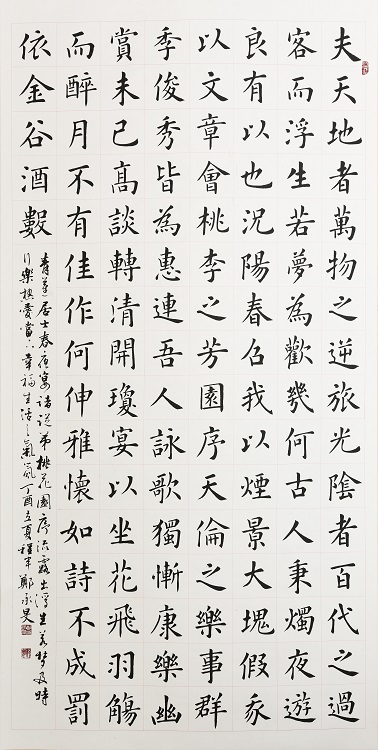 夫天地者萬物之逆旅光陰者百代之過
客而浮生若夢為歡幾何古人秉燭夜遊
良有以也況陽春召我以煙景大塊假我
以文章會桃李之芳園序天倫之樂事群
季俊秀皆為惠連吾人詠歌獨慚康樂幽
賞未已髙談轉清開瓊宴以坐花飛羽觴
而醉月不有佳作何伸雅懷如詩不成罰
依金谷酒數
青蓮居士春夜宴諸從弟桃花園序流露出浮生若夢及時
行樂熱愛當下幸福生活之氣氛丁酉立夏鄭承旻